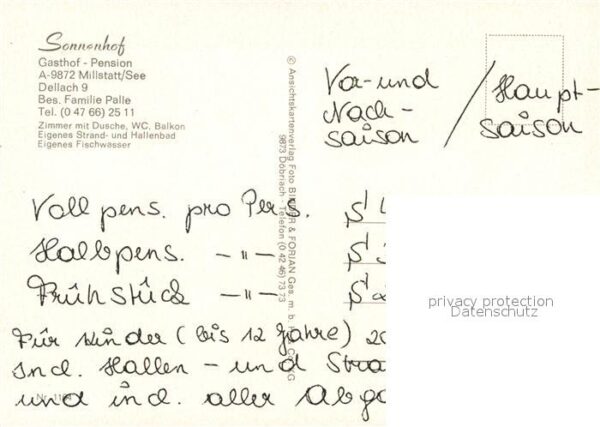 Sonnenhof
Gasthof - Pension
A-9872 Millstatt/See
Dellach 9
Bes. Familie Palle
Tel. (0 47 66) 25 11
Zimmer mit Dusche, WC, Balkon
Eigenes Strand- und Hallenbad
Eigenes Fischwasser
© Ansichtskartenverlag Foto & FORIAN Ges. m. b.
9873 Döbriach - Telefon (0 42 46) 73 73
Vor- und
Nach-
saison
/
Haupt-
saison
Vollpens. pro Pers. S
Halbpens. — " — S
Frühstück — " — S
Für Kinder (bis 12 Jahre) 20
incl. Hallen - und Stra
und incl. aller Abga
Nr.
privacy protection
Datenschutz